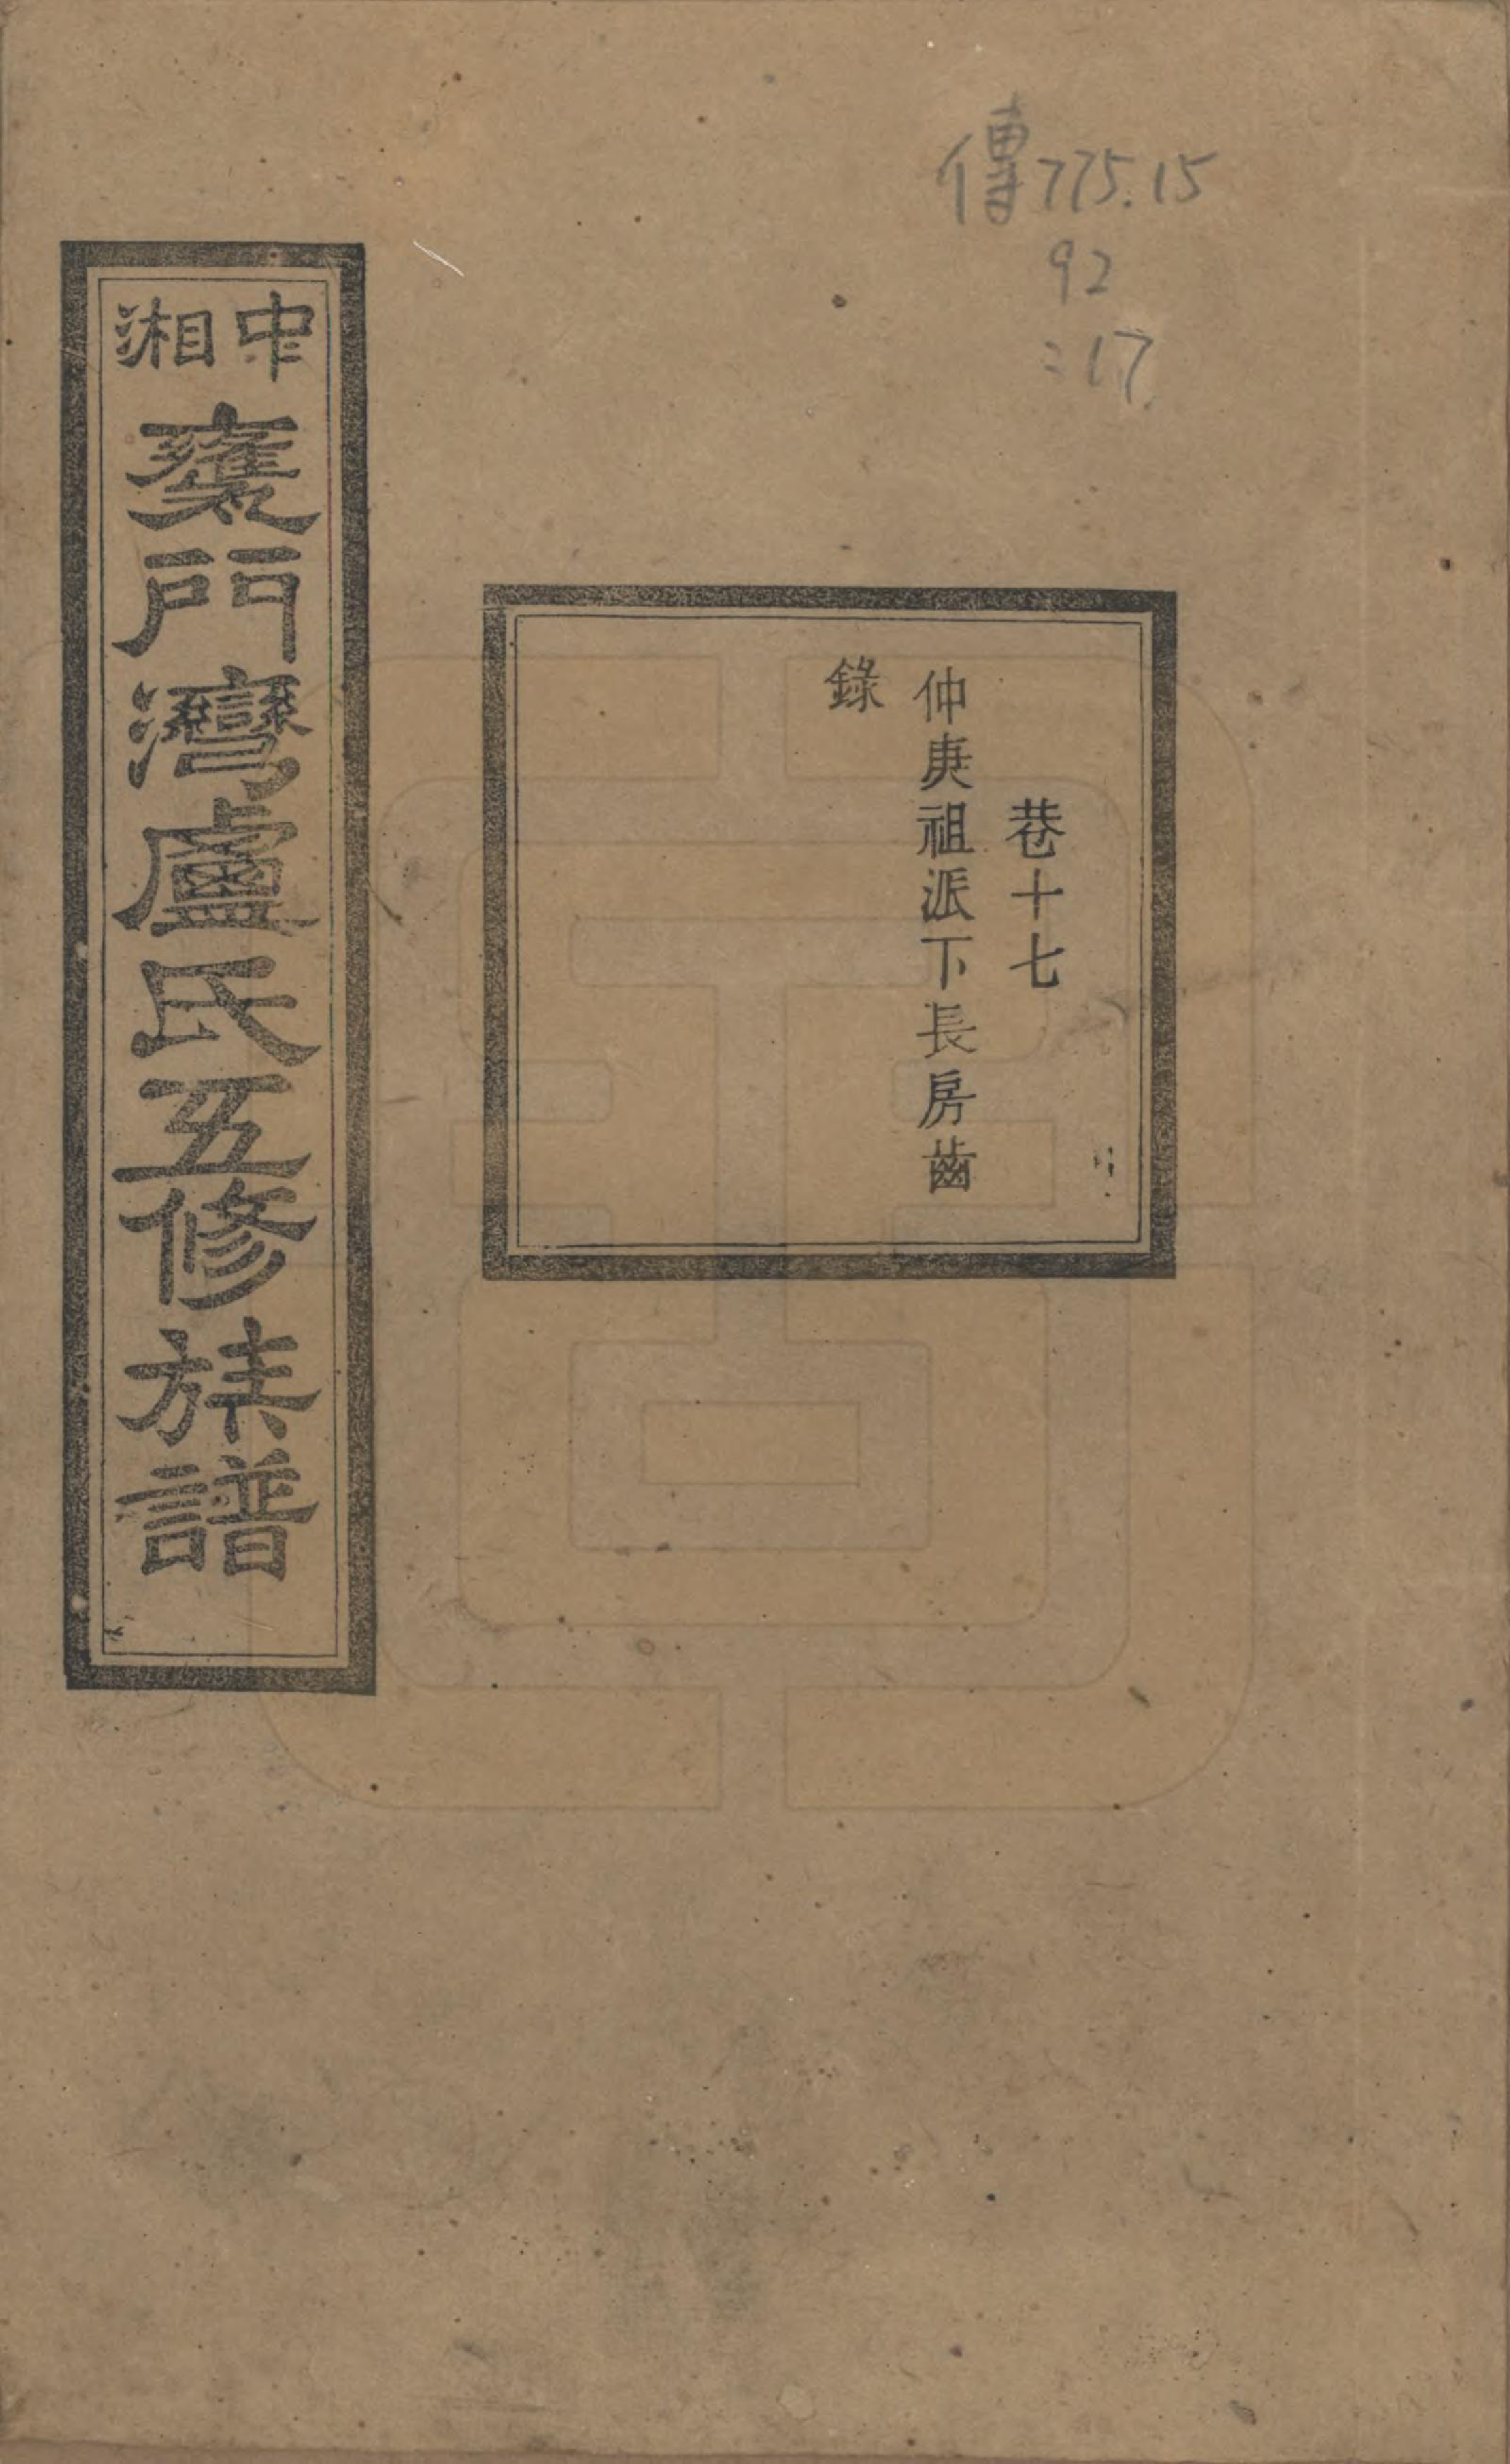 傳775.15
92
:17
卷十七
仲庚祖派下長房齒
錄
中湘
甕門灣盧氏五修族譜